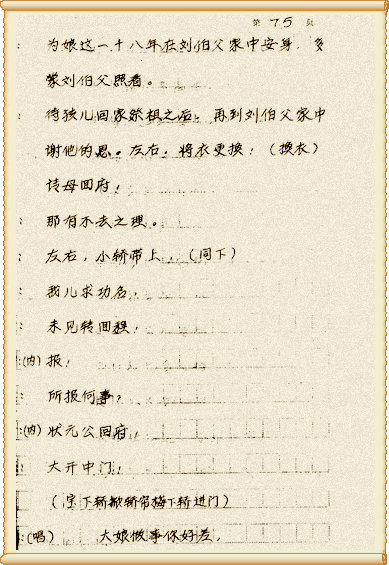 第 75 页
: 为娘这一十八年在刘伯父家中安身，多
蒙刘伯父照看。
: 待孩儿回家祭祖之后，再到刘伯父家中
谢他的恩。左右，将衣更换！（换衣）
请母回府！
: 那有不去之理。
: 左右，小轿带上！（同下）
: 我儿求功名，
: 未见转回程！
:(内) 报！
: 所报何事？
:(内) 状元公回府！
: 大开中门！
（ 下轿 轿帘梅下轿进门）
:(唱) 大娘做事你好差，